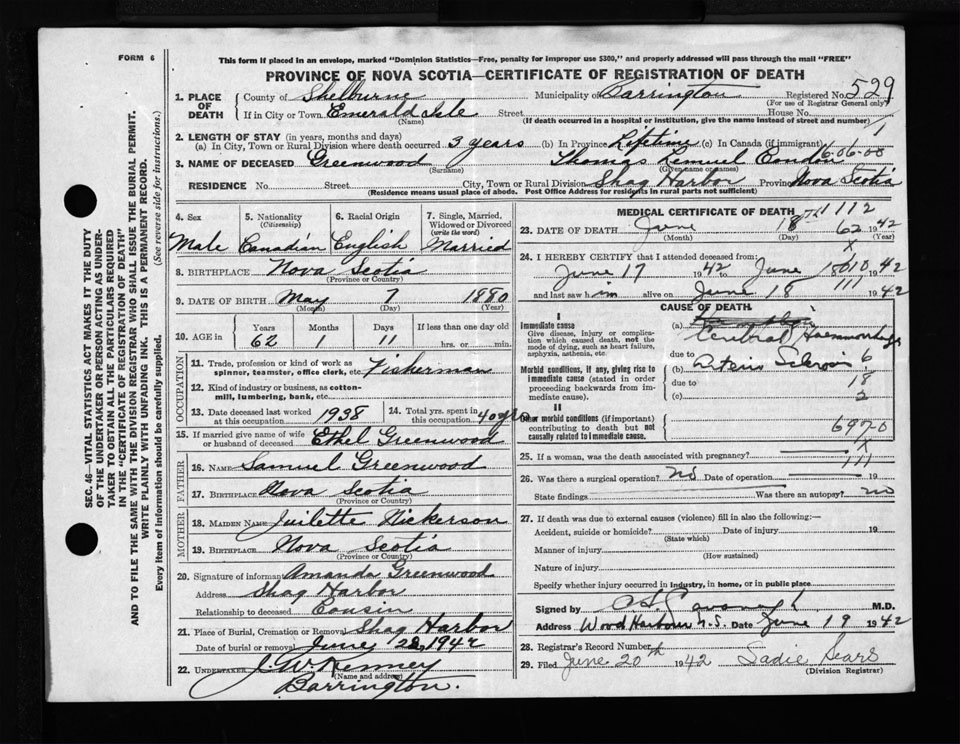 FORM 6
This form if placed in an envelope, marked "Dominion Statistics—Free, penalty for improper use $300," and properly addressed will pass through the mail "FREE"
PROVINCE OF NOVA SCOTIA—CERTIFICATE OF REGISTRATION OF DEATH
SEC. 46—VITAL STATISTICS ACT MAKES IT THE DUTY
OF THE UNDERTAKER OR PERSON ACTING AS UNDER-
TAKER TO OBTAIN ALL THE PARTICULARS REQUIRED
IN THE "CERTIFICATE OF REGISTRATION OF DEATH"
AND TO FILE THE SAME WITH THE DIVISION REGISTRAR WHO SHALL ISSUE THE BURIAL PERMIT.
WRITE PLAINLY WITH UNFADING INK. THIS IS A PERMANENT RECORD.
Every item of information should be carefully supplied. (See reverse side for instructions.)
1. PLACE OF DEATH
County of Shelburne Municipality of Barrington Registered No. 529
(For use of Registrar General only)
If in City or Town Emerald Isle Street House No.
(Name) (If death occurred in a hospital or institution, give the name instead of street and number)
2. LENGTH OF STAY (in years, months and days)
(a) In City, Town or Rural Division where death occurred 3 years (b) In Province Lifetime (c) In Canada (if immigrant)
3. NAME OF DECEASED Greenwood Thomas Lemuel Condon 16-06-00
(Surname) (Given name or names)
RESIDENCE No. Street City, Town or Rural Division Shag Harbor Province Nova Scotia
(Residence means usual place of abode. Post Office Address for residents in rural parts not sufficient)
4. Sex 5. Nationality (Citizenship) 6. Racial Origin 7. Single, Married, Widowed or Divorced (write the word)
Male Canadian English Married
8. BIRTHPLACE Nova Scotia
(Province or Country)
9. DATE OF BIRTH May 7 1880
(Month) (Day) (Year)
10. AGE in Years Months Days If less than one day old
62 1 11 hrs. or min.
OCCUPATION
11. Trade, profession or kind of work as spinner, teamster, office clerk, etc. Fisherman
12. Kind of industry or business, as cotton-mill, lumbering, bank, etc.
13. Date deceased last worked at this occupation 1938 14. Total yrs. spent in this occupation 40 yrs
15. If married give name of wife or husband of deceased Ethel Greenwood
FATHER
16. NAME Samuel Greenwood
17. BIRTHPLACE Nova Scotia
(Province or Country)
MOTHER
18. MAIDEN NAME Juilette Nickerson
19. BIRTHPLACE Nova Scotia
(Province or Country)
20. Signature of informant Amanda Greenwood
Address Shag Harbor
Relationship to deceased Cousin
21. Place of Burial, Cremation or Removal Shag Harbor
Date of burial or removal June 1942
22. UNDERTAKER J. W. Kenney
(Name and address)
Barrington.
MEDICAL CERTIFICATE OF DEATH 1112
23. DATE OF DEATH June 18th 62 1942
(Month) (Day) (Year)
24. I HEREBY CERTIFY that I attended deceased from:
June 17 1942 to June 1942
and last saw him alive on June 18 1942
CAUSE OF DEATH
I
Immediate cause
Give disease, injury or complication which caused death, not the mode of dying, such as heart failure, asphyxia, asthenia, etc.
(a) Cerebral Haemorrhage
due to 6
Morbid conditions, if any, giving rise to immediate cause (stated in order proceeding backwards from immediate cause).
(b) Arterio Sclerosis
due to 18
(c) 2
II
Other morbid conditions (if important) contributing to death but not causally related to immediate cause.
6970
25. If a woman, was the death associated with pregnancy? X
111
26. Was there a surgical operation? no Date of operation 19
State findings Was there an autopsy? no
27. If death was due to external causes (violence) fill in also the following:—
Accident, suicide or homicide? Date of injury 19
(State which)
Manner of injury
(How sustained)
Nature of injury
Specify whether injury occurred in industry, in home, or in public place
Signed by M.D.
Address Wood Harbour N.S. Date June 19 1942
28. Registrar's Record Number
29. Filed June 20th 1942 Sadie Sears
(Division Registrar)